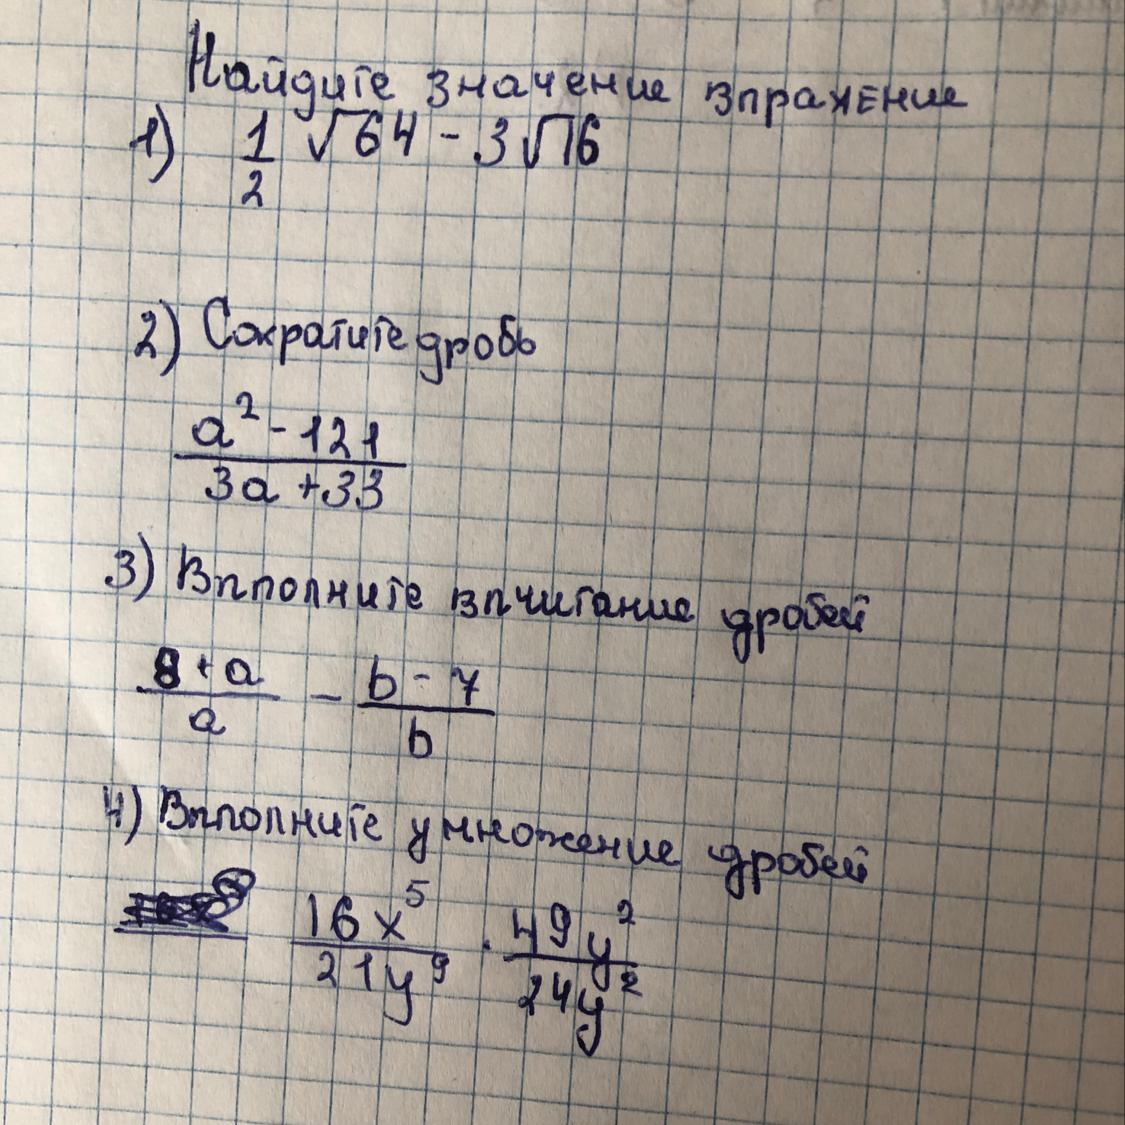 Найдите значение впражение
1) 1/2 √64 - 3√16
2) Сократите дробь
a² - 121
3a + 33
3) Впполните впчитание дробей
8 + a / a - b - 7 / b
4) Впполните умножение дробей
16x⁵ / 21y⁹ · 49y² / 24y²